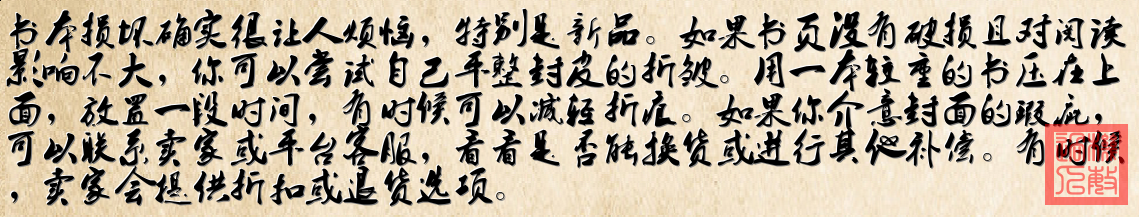 书本损坏确实很让人烦恼，特别是新品。如果书页没有破损且对阅读
影响不大，你可以尝试自己平整封皮的折皱。用一本较重的书压在上
面，放置一段时间，有时候可以减轻折痕。如果你介意封面的瑕疵，
可以联系卖家或平台客服，看看是否能换货或进行其他补偿。有时候
，卖家会提供折扣或退货选项。